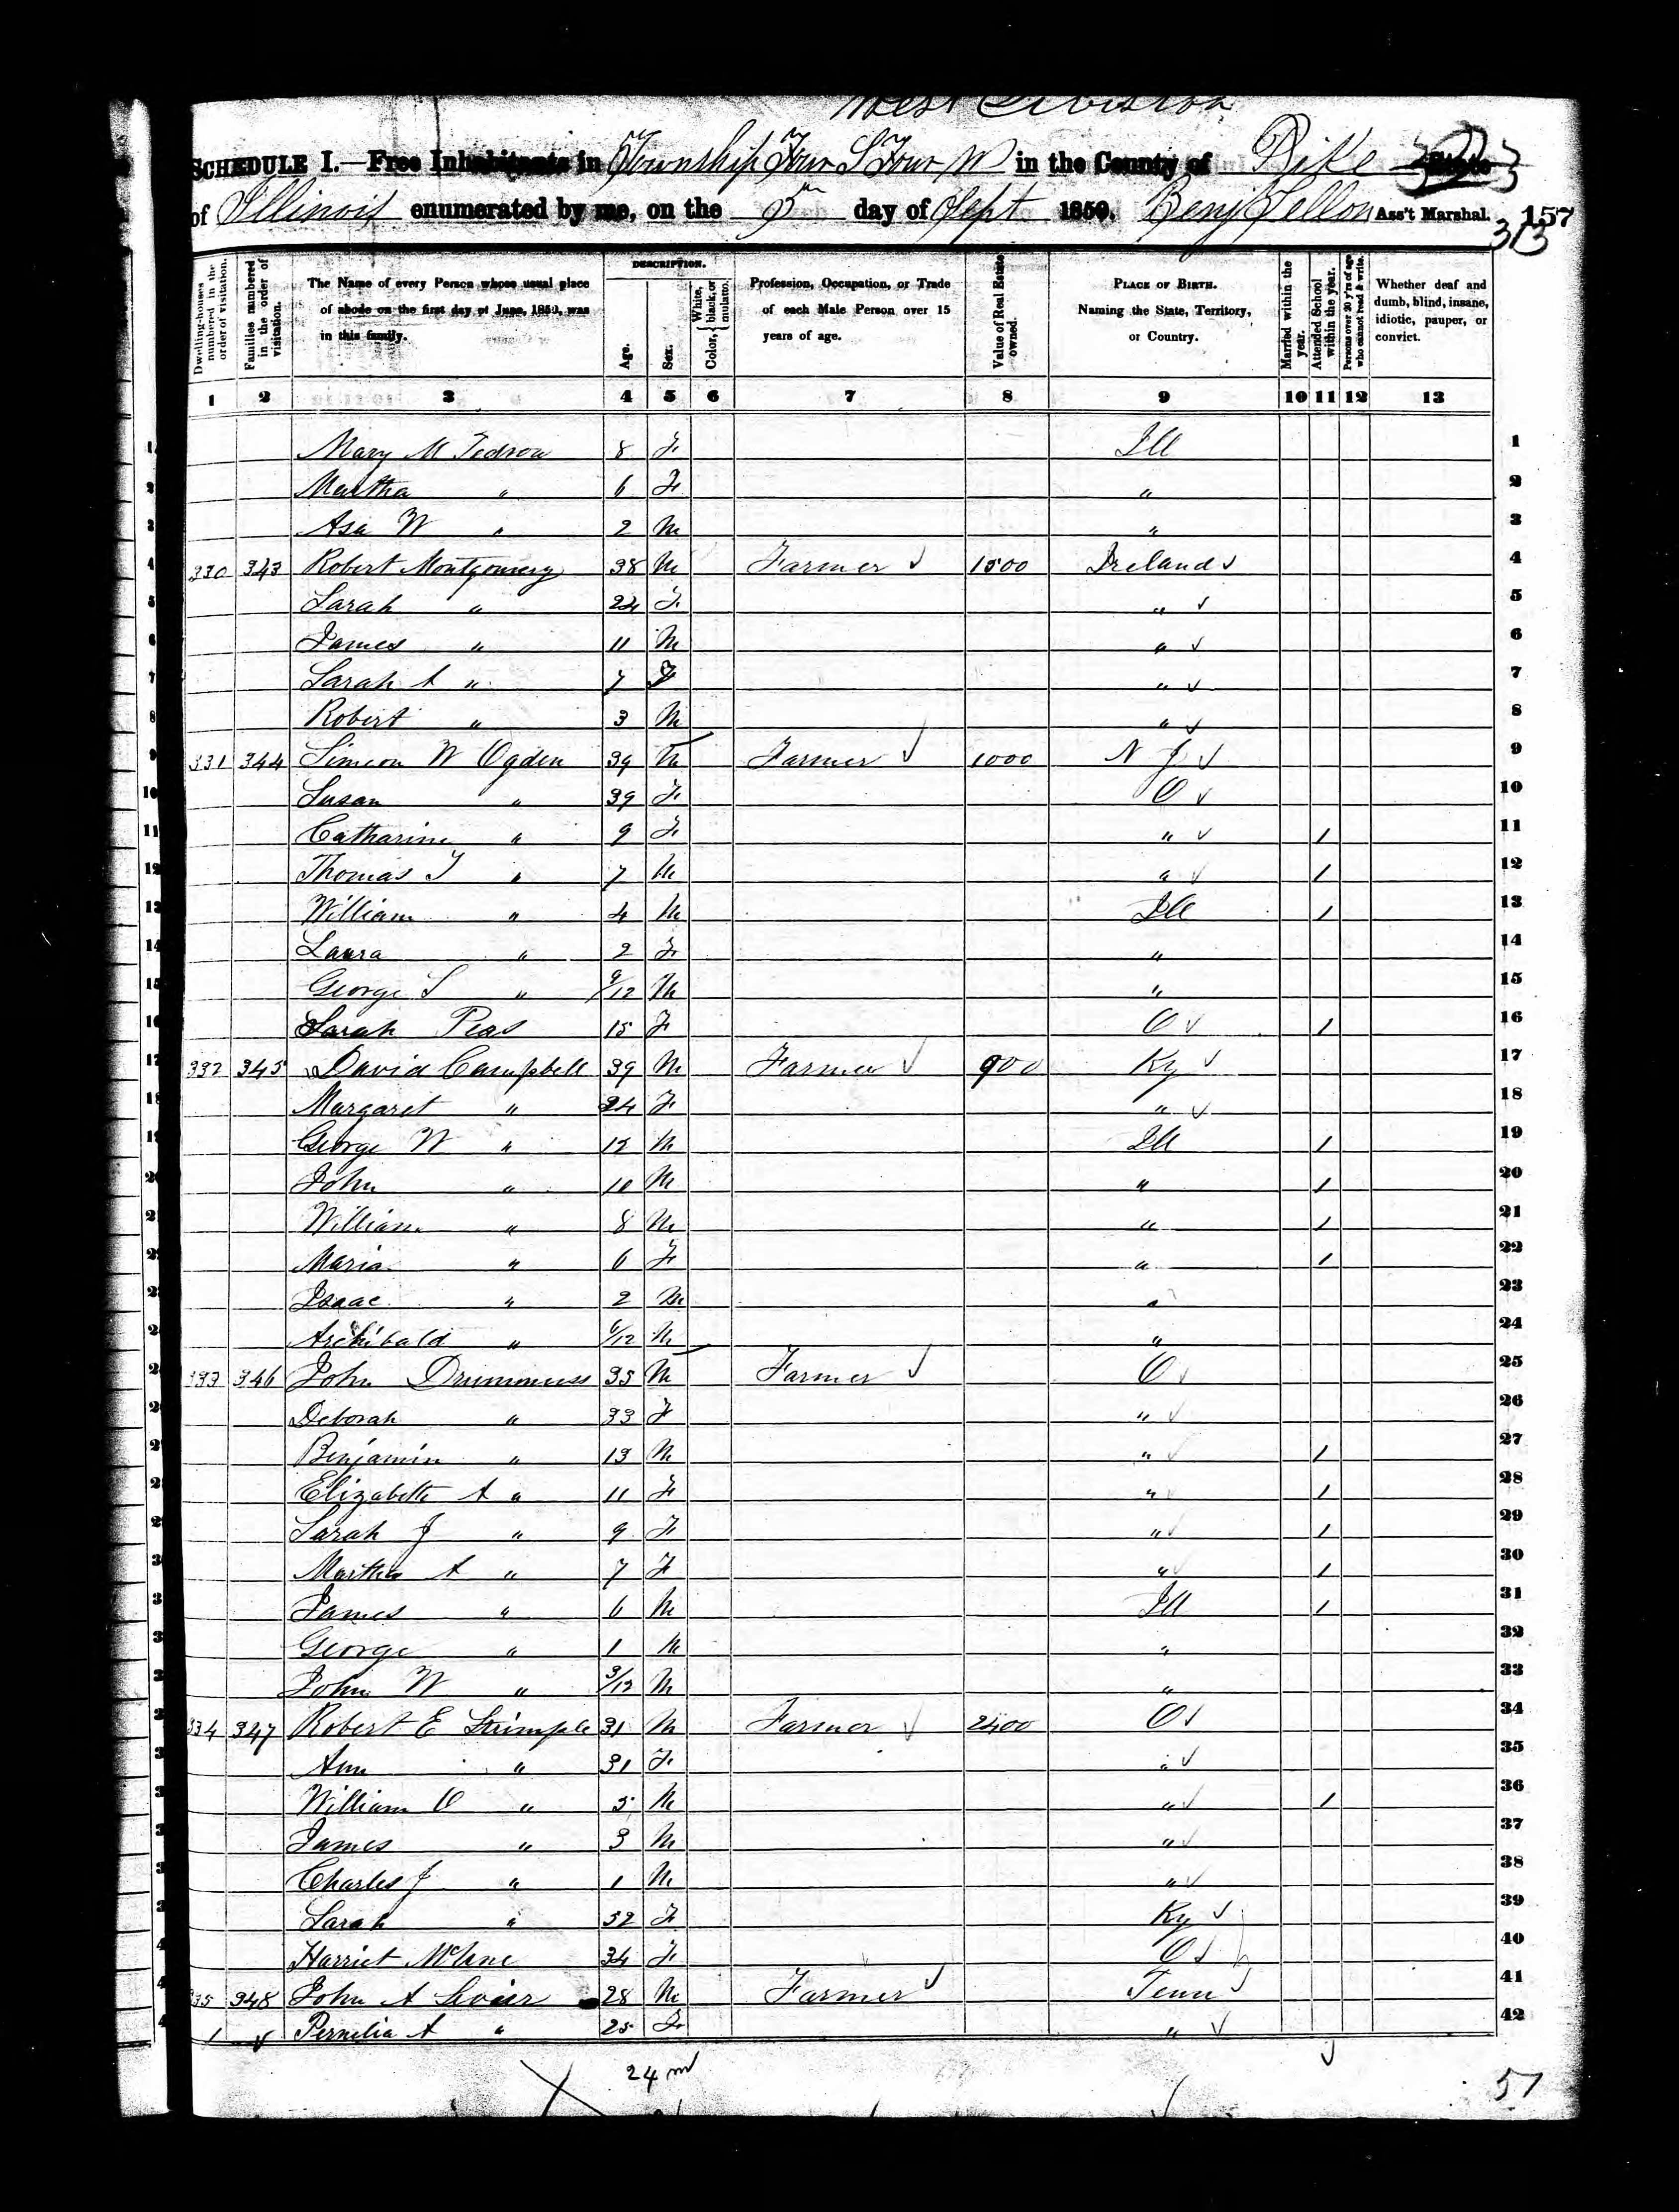 West Division
SCHEDULE I.—Free Inhabitants in Township Four S Four W in the County of Pike State
of Illinois enumerated by me, on the 5th day of Sept 1850. Benj Ass't Marshal. 157
313
Dwelling-houses numbered in the order of visitation.
Families numbered in the order of visitation.
The Name of every Person whose usual place of abode on the first day of June, 1850, was in this family.
DESCRIPTION.
Age.
Sex.
Color, White, black, or mulatto.
Profession, Occupation, or Trade of each Male Person over 15 years of age.
Value of Real Estate owned.
PLACE OF BIRTH. Naming the State, Territory, or Country.
Married within the year.
Attended School within the year.
Persons over 20 y'rs of age who cannot read & write.
Whether deaf and dumb, blind, insane, idiotic, pauper, or convict.
1 2 3 4 5 6 7 8 9 10 11 12 13
1 Mary M Tedrow 8 F Ill 1
2 Martha " 6 F " 2
3 Asa W " 2 M " 3
4 330 343 Robert Montgomery 38 M Farmer ✓ 1500 Ireland ✓ 4
5 Sarah " 24 F " ✓ 5
6 James " 11 M " ✓ 6
7 Sarah A " 7 F " ✓ 7
8 Robert " 3 M " ✓ 8
9 331 344 Simeon W Ogden 39 M Farmer ✓ 1000 N J ✓ 9
10 Susan " 39 F O ✓ 10
11 Catharine " 9 F " ✓ 1 11
12 Thomas J " 7 M " ✓ 1 12
13 William " 4 M Ill 1 13
14 Laura " 2 F " 14
15 George S " 9/12 M " 15
16 Sarah Peas 15 F O ✓ 1 16
17 332 345 David Campbell 39 M Farmer ✓ 900 Ky ✓ 17
18 Margaret " 34 F " ✓ 18
19 George W " 12 M Ill 1 19
20 John " 10 M " 1 20
21 William " 8 M " 1 21
22 Maria " 6 F " 1 22
23 Isaac " 2 M " 23
24 Archibald " 6/12 M " 24
25 333 346 John Drummuss 35 M Farmer ✓ O ✓ 25
26 Deborah " 33 F " ✓ 26
27 Benjamin " 13 M " ✓ 1 27
28 Elizabeth A " 11 F " ✓ 1 28
29 Sarah J " 9 F " ✓ 1 29
30 Martha A " 7 F " ✓ 1 30
31 James " 6 M Ill 1 31
32 George " 1 M " 32
33 John W " 3/12 M " 33
34 334 347 Robert E Shimple 31 M Farmer ✓ 2400 O ✓ 34
35 Ann " 31 F " ✓ 35
36 William O " 5 M " ✓ 1 36
37 James " 3 M " ✓ 37
38 Charles J " 1 M " ✓ 38
39 Sarah " 52 F Ky ✓ 39
40 Harriet 34 F O ✓ 40
41 335 348 John A 28 M Farmer ✓ Tenn ✓ 41
42 Pernelia A " 25 F " ✓ 42
24 m
57